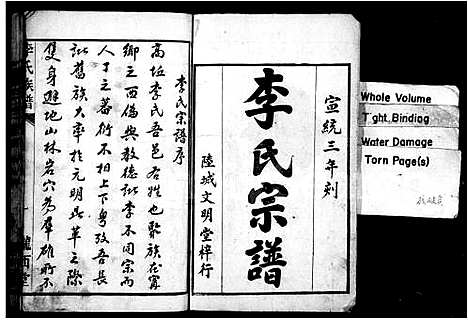 宣統三年刻
李氏宗譜
陸城文明堂梓行
李氏宗譜序
高坵李氏吾邑右姓也聚族在寡
鄉之西偏與敦德訛李不同宗而
丁之蕃衍不相上下粵攷吾長
訛舊族大率於元明鼎革之際
隻身避地山林岩穴為羣雄所不
李氏族譜
一
隴西堂
Whole Volume
Tight Binding
Water Damage
Torn Page(s)